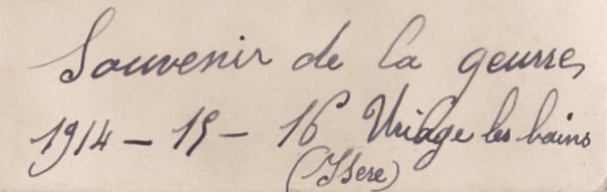 Souvenir de la geurre,
1914 - 15 - 16 Uriage les bains
(Isere)